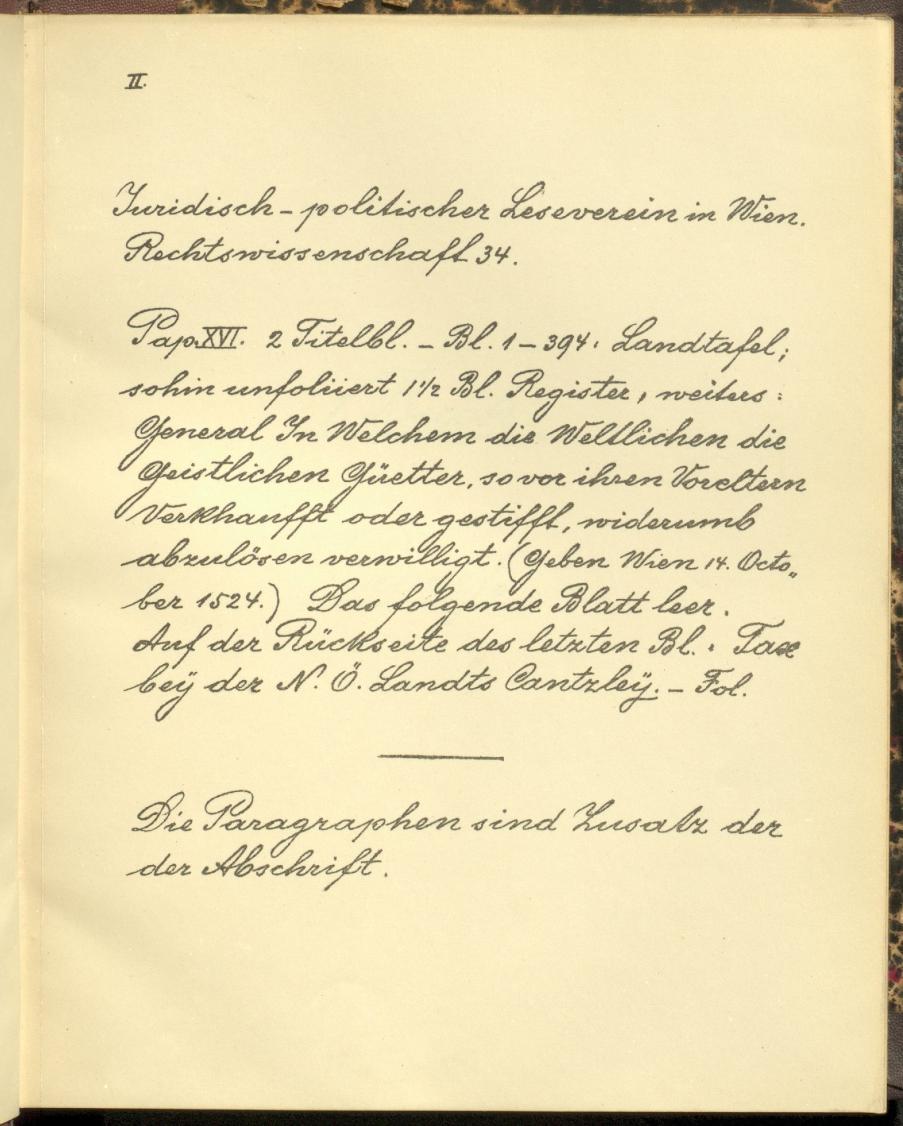 II.
Juridisch-politischer Leseverein in Wien.
Rechtswissenschaft 34.
Pap. XVI. 2 Titelbl. – Bl. 1 – 394: Landtafel;
sohin unfoliiert 1 1/2 Bl. Register, weiters:
General In Welchem die Weltlichen die
Geistlichen Güetter, so vor ihren Voreltern
Verkhaufft oder gestifft, widerumb
abzulösen verwilligt. (Geben Wien 14. Octo„
ber 1524.) Das folgende Blatt leer.
Auf der Rückseite des letzten Bl.: Tax
beÿ der N. Ö. Landts Cantzleÿ. – Fol.
Die Paragraphen sind Zusatz der
der Abschrift.